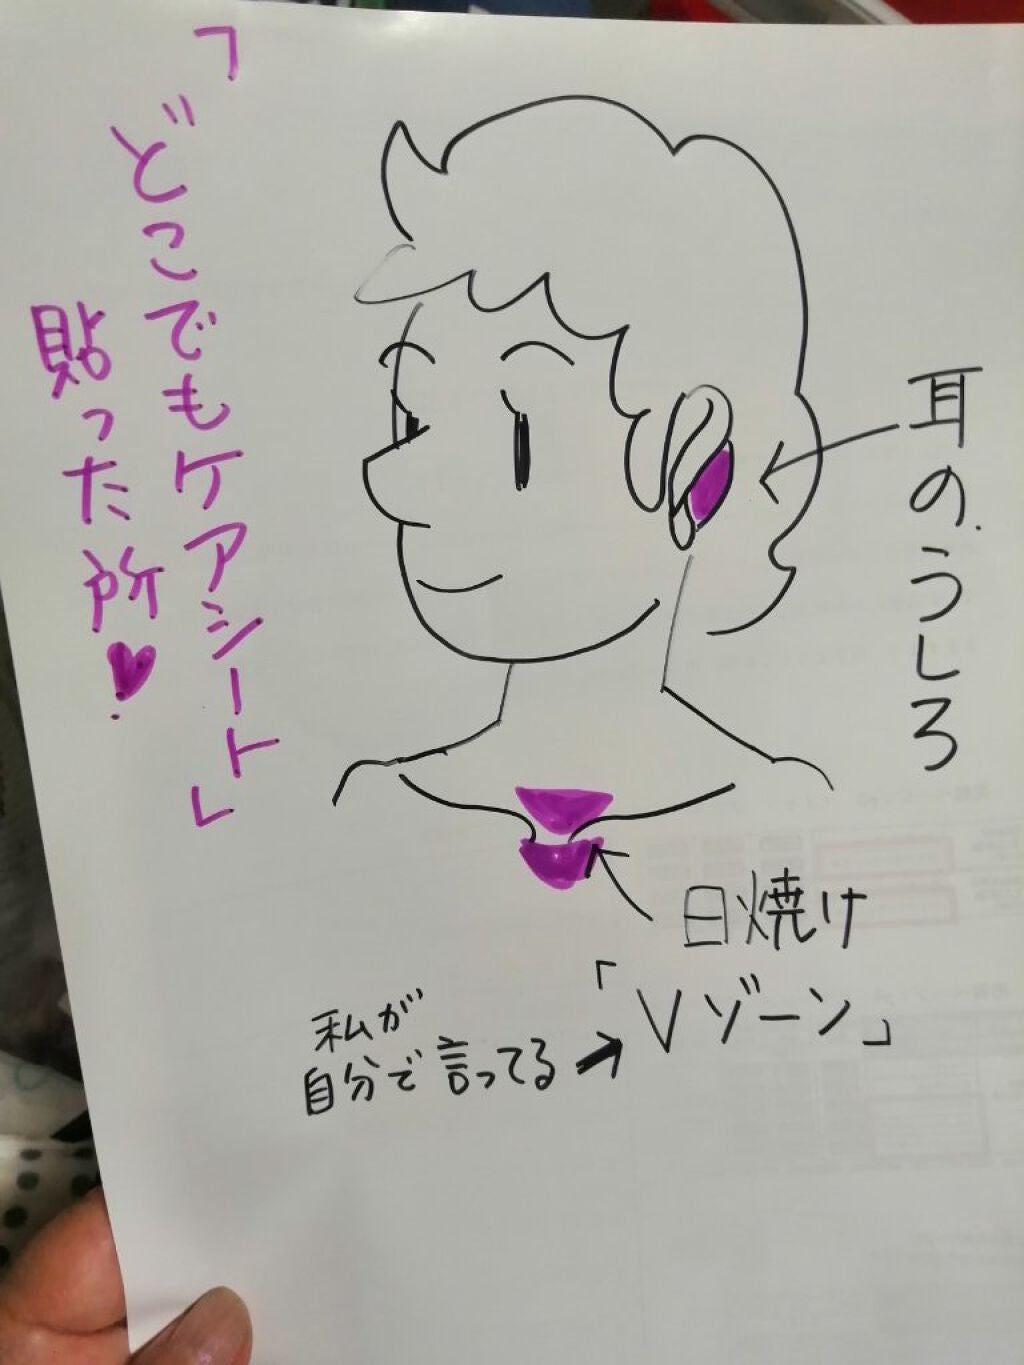 「どこでもケアシート」
貼った所♥
耳のうしろ
日焼け
「Vゾーン」
私が
自分で言ってる→